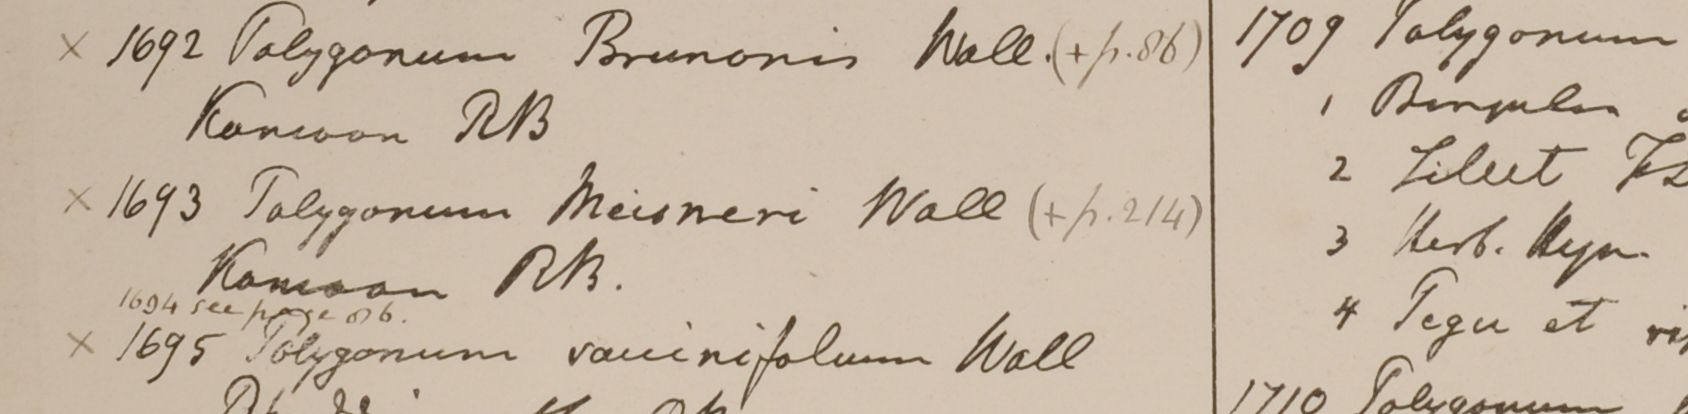 × 1692 Polygonum Brunonis Wall. (+ p. 86)
Kamoon RB
× 1693 Polygonum Meisneri Wall (+ p. 214)
Kamoon RB.
1694 see page 86.
× 1695 Polygonum vaccinifolium Wall
1709 Polygonum
1
2 Sillet
3 Herb. Heyn.
4 et
1710 Polygonum